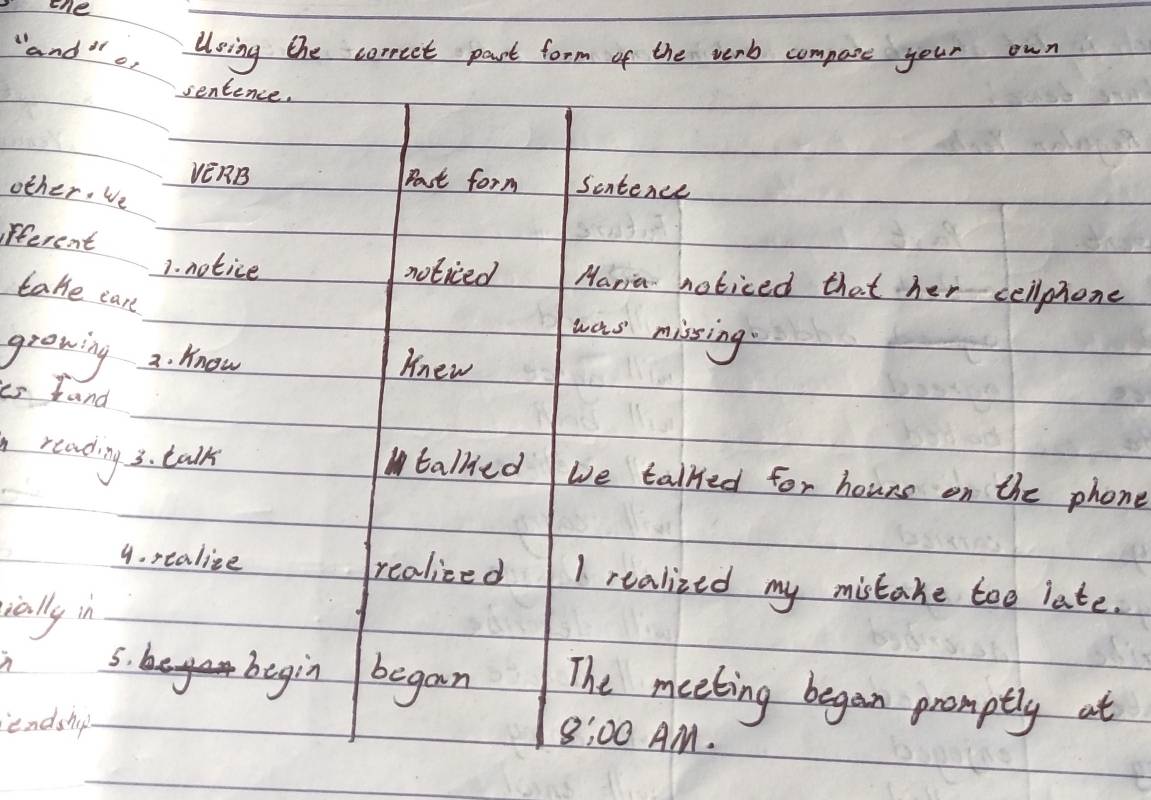 the
"and" or
other. We
ifferent
take care
growing
es and
reading
ially in
iendship
Using the correct past form of the verb compose your own
sentence.
VERB Past form Sentence
1. notice noticed Maria noticed that her cellphone
was missing.
2. Know Knew
3. talk talked We talked for hours on the phone
4. realize realized I realized my mistake too late.
5. began begin began The meeting began promptly at
8:00 AM.